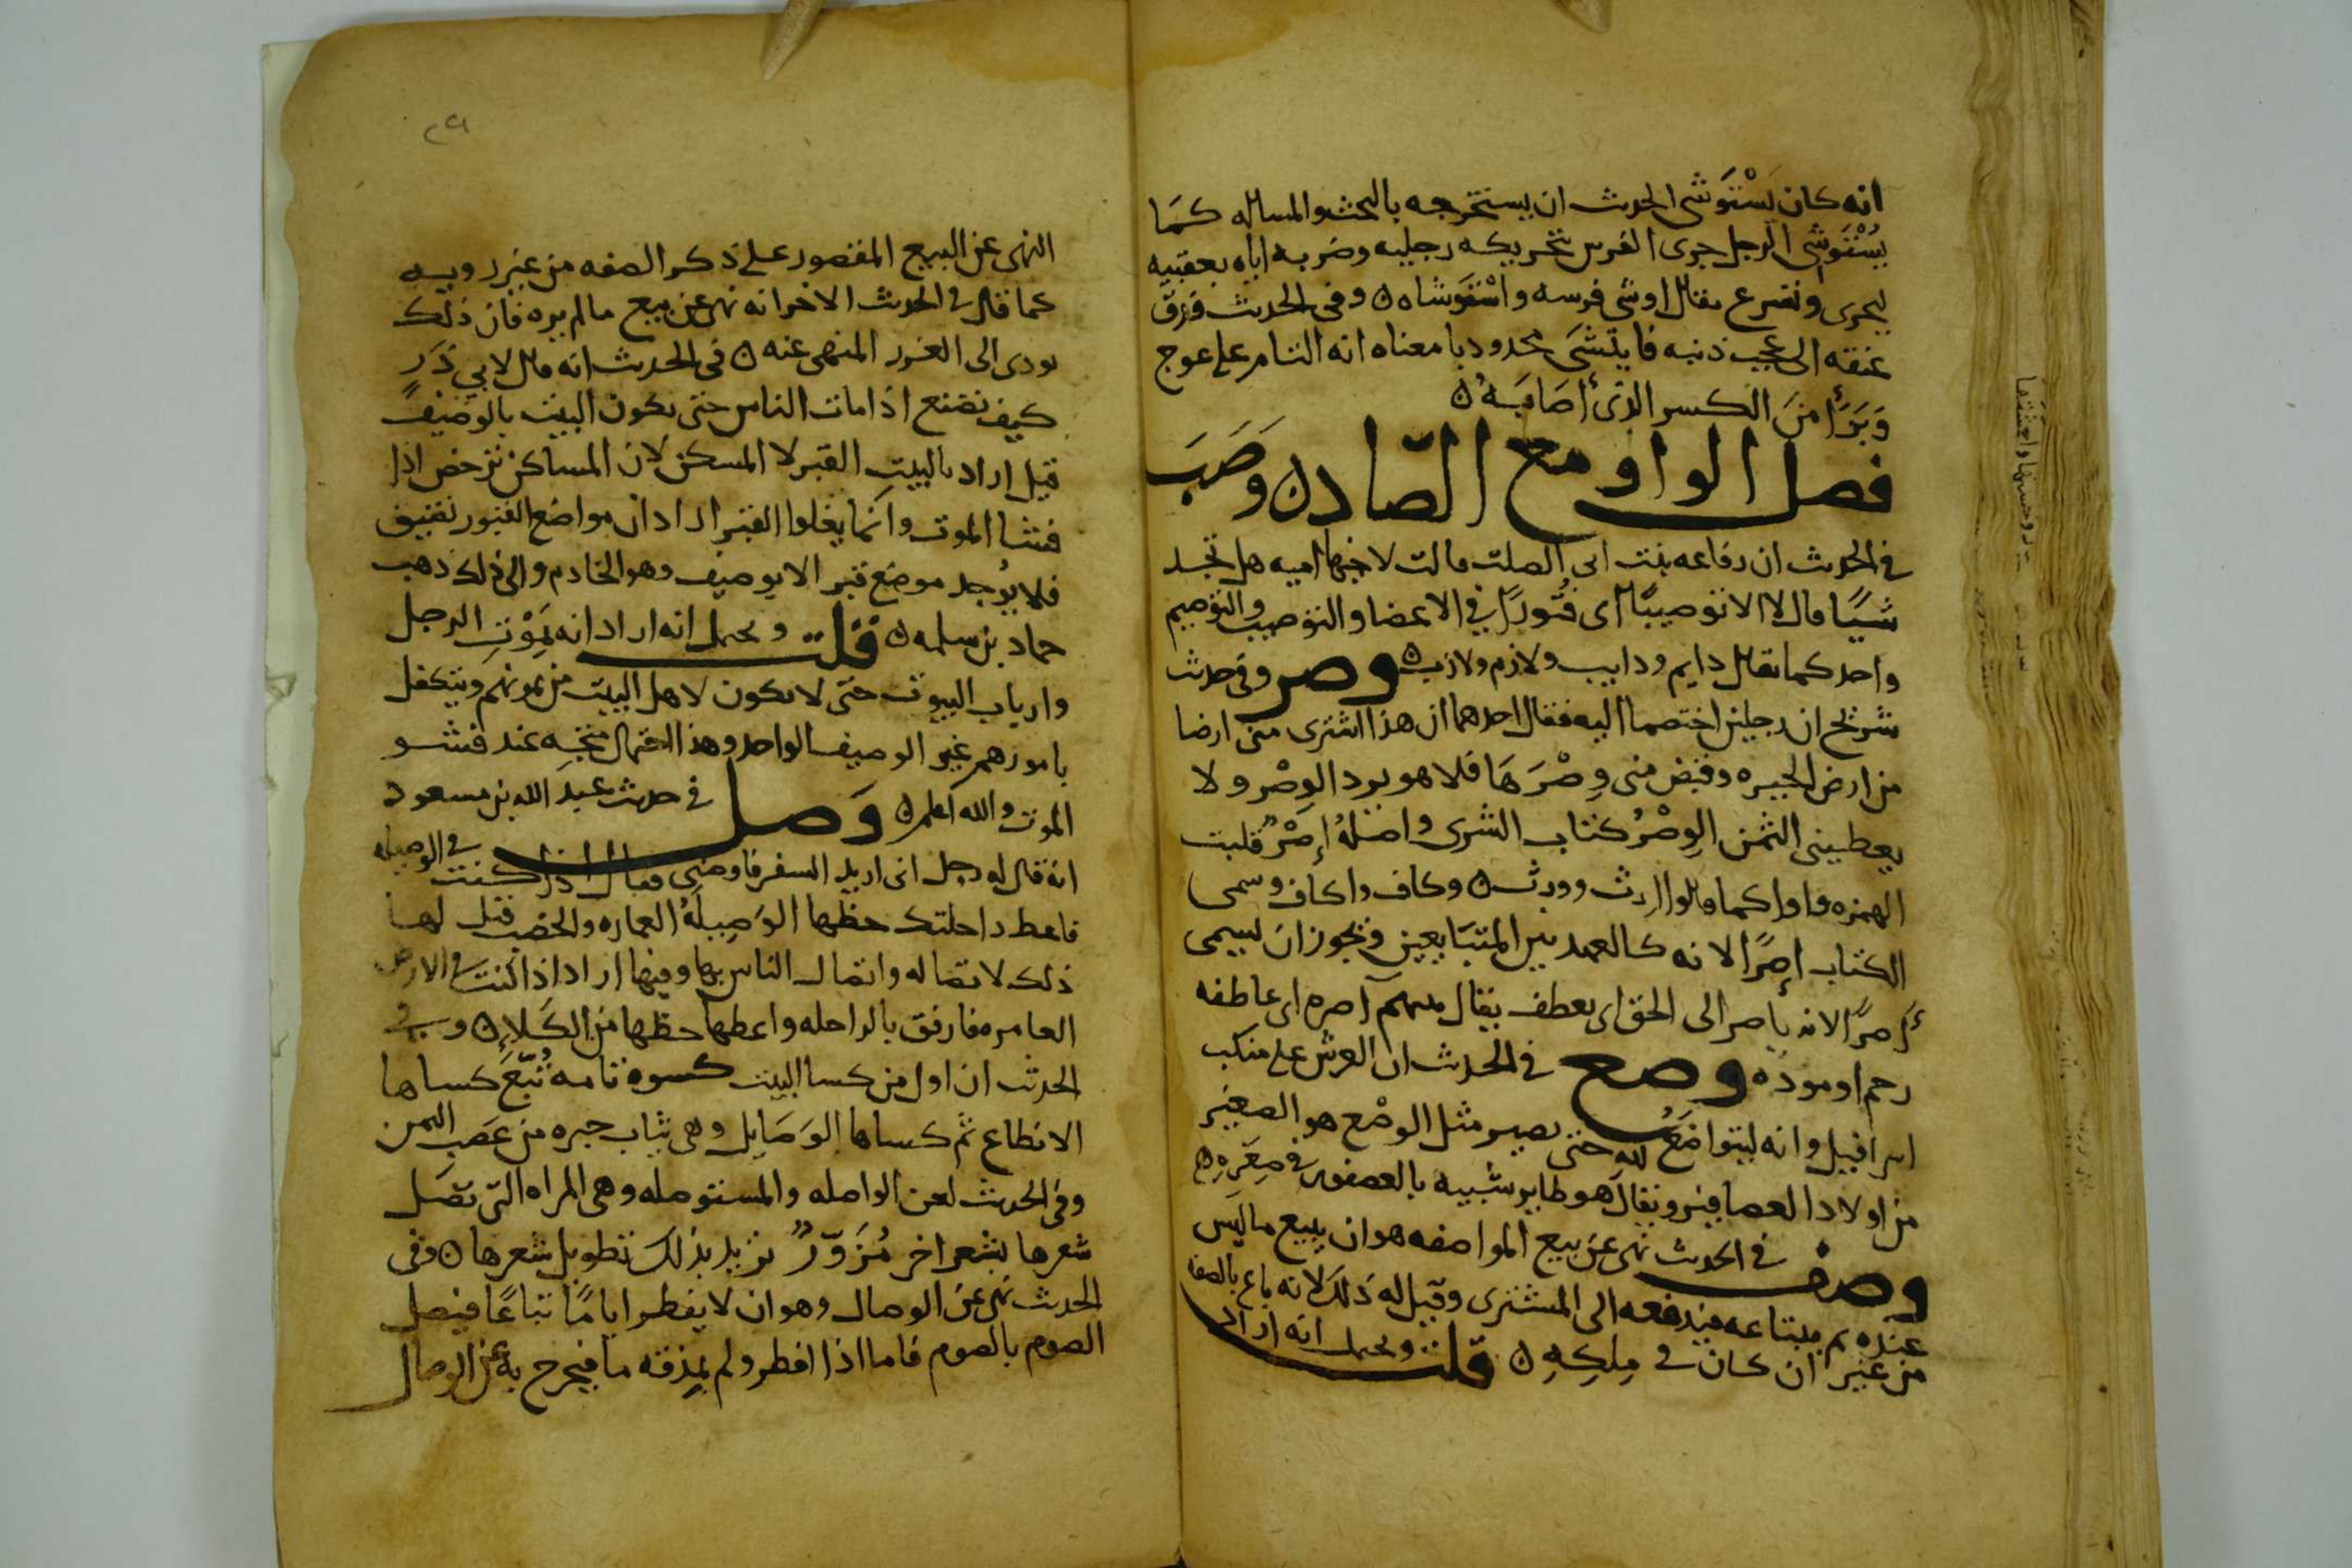 انه كان يَسْتَوشى الحديث ان يستخرجه بالبحث والمساله كمَا
يسْتَوشى الرجل جرى الفرس بتحريكه رجليه وضربه اياه بعقبيه
ليجرى ويسرع يقال اوشى فرسه واسْتَوشاه ن وفى الحديث فدق
عنقه الى عجب ذنبه فايتشَى محدودبا معناه انه التام على عوج
وَبَرَأ منَ الكسر الذى أصَابَهُ ن
فصل الواو مع الصّاد ن وَصَبَ
فى الحديث ان رفاعه بنت ابى الصلت قالت لاخيها اميه هل تجد
شيًا قال لا الا توصيبًا اى فتُورًا فى الاعضا والتوصيب والتوصيم
واحد كما يقال دايم ودايب ولازم ولازب ن وصر وفى حديث
شريح ان رجلين اختصما اليه فقال احدهما ان هذا اشترى منى ارضا
من ارض الحيره وقبض منى وِصْرَهَا فلا هو يرد الوِصْر ولا
يعطينى الثمن الوِصْرُ كتاب الشرى واصْلهُ إصْرٌ قلبت
الهمزه واوا كما قالوا ارث وورث ن وكاف واكاف وسمى
الكتاب إصرًا لانه كالعهد بين المتبَايعين ويجوز ان يسمى
أَصرًا لانه يأصر الى الحق اى يعطف يقال بينهم آصره اى عاطفه
رحم او موده وصع فى الحديث ان العرش على منكب
اسرافيل وانه ليتواضَعُ لله حتى يصير مثل الوصْع هو الصغير
من اولاد العصافير ويقال هو طاير شبيه بالعصفور فى صِغَرِهِ ه
وصف فى الحديث نهى عن بيع المواصفه هو ان يبيع ما ليس
عنده ثم يبتاعه فيدفعه الى المشترى وقيل له ذلك لانه باع بالصفه
من غير ان كان فى مِلكِهِ ن قلت ويحتمل انه اراد
٢٩
النهى عن البيع المقصور على ذكر الصفه من غير رويه
كما قال فى الحديث الاخر انه نهى عن بيع ما لم يره فان ذلك
يودى الى الغرر المنهى عنه ن فى الحديث انه قال لابي ذَر
كيف تصنع اذا مات الناس حتى يكون البيت بالوصيف
قيل اراد بالبيت القبر لا المسكن لان المساكن ترخص اذا
فشا الموت وانما يغلوا القبر اراد ان مواضع القبور تضيق
فلا يُوجد موضع قبر الا بوصيف وهو الخادم والى ذلك ذهب
حماد بن سلمه ن قلت ويحتمل انه اراد انه يَمُوْت الرجل
وارباب البيوت حتى لا يكون لاهل البيت من يمونهم ويتكفل
بامورهم غير الوصيف الواحد وهذا احتمال متجه عند فشو
الموت والله اعلم ن وَصل فى حديث عبد الله بن مسعود
انه قال له رجل انى اريد السفر فاوصنى فقال اذا كنت فى الوصيله
فاعط راحلتك حظها الوَصِيلَهُ العماره والخصب قيل لها
ذلك لاتصاله واتصال الناس بها وفيها اراد اذا كنت فى الارض
العامره فارفق بالراحله واعطها حظها من الكَلاء ن وفى
الحديث ان اول من كسا البيت كسوة تامه تُبّعَ كساها
الانطاع ثم كساها الوَصَايل وهى ثياب حبره من عَصب اليمن
وفى الحديث لعن الواصله والمستوصله وهى المراه التى تصَل
شعرها بشعر اخر مُزَوّرٌ تريد بذلك تطويل شعرها ن وفى
الحديث نهى عن الوصال وهو ان لا يفطر ايامًا تباعًا فيصل
الصوم بالصوم فاما اذا افطر ولم بمذقه ما فيخرج به عن الوصال